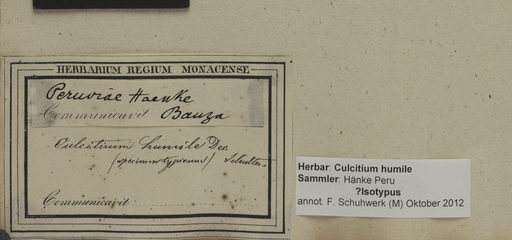 HERBARIUM REGIUM MONACENSE
Peruviae Haenke
Communicavit Bauza
Culcitium humile Dec
(specimen typicum)
Communicavit
Herbar: Culcitium humile
Sammler: Hänke Peru
?Isotypus
annot. F. Schuhwerk (M) Oktober 2012